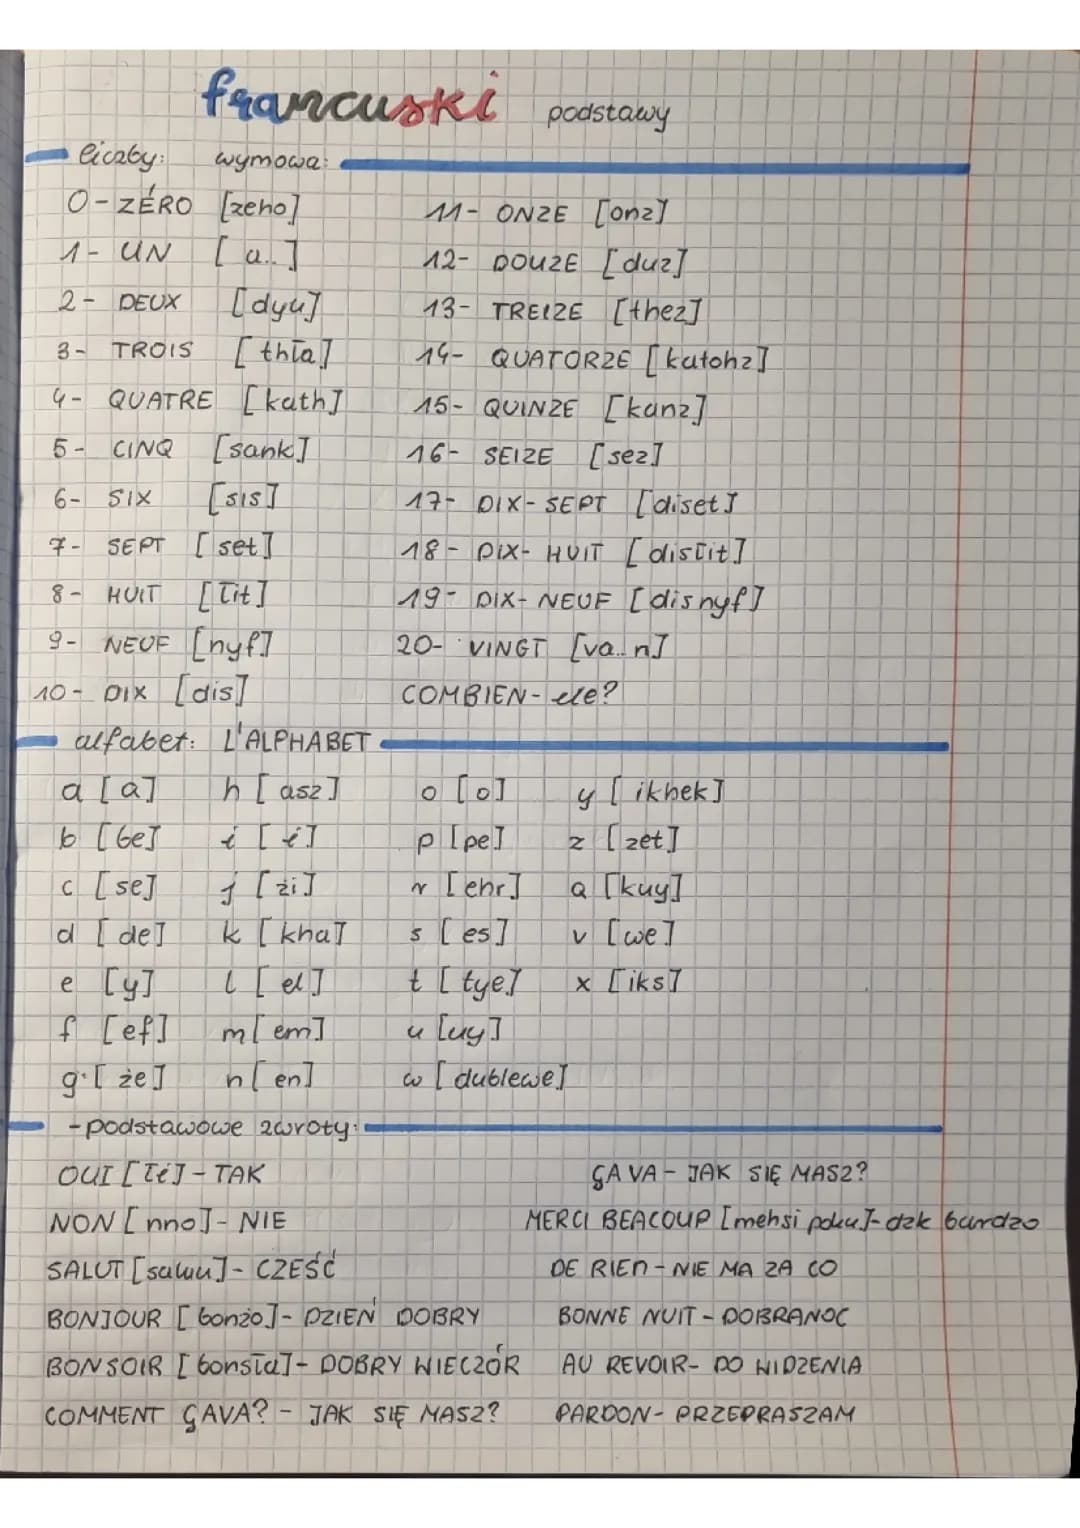 francuski podstawy
liczby: wymowa:
0 - ZÉRO [zeho]
1 - UN [a..]
2 - DEUX [dyu]
3 - TROIS [thła]
4 - QUATRE [kath]
5 - CINQ [sank]
6 - SIX [sis]
7 - SEPT [set]
8 - HUIT [łit]
9 - NEUF [nyf]
10 - DIX [dis]
11 - ONZE [onz]
12 - DOUZE [duz]
13 - TREIZE [thez]
14 - QUATORZE [katohz]
15 - QUINZE [kanz]
16 - SEIZE [sez]
17 - DIX-SEPT [diset]
18 - DIX-HUIT [disłit]
19 - DIX-NEUF [disnyf]
20 - VINGT [va..n]
COMBIEN - ile?
alfabet: L'ALPHABET
a [a] h [asz] o [o] y [ikhek]
b [be] i [i] p [pe] z [zet]
c [se] j [żi] r [ehr] Q [kuy]
d [de] k [kha] s [es] v [we]
e [y] l [el] t [tye] x [iks]
f [ef] m [em] u [uy]
g [że] n [en] w [dublewe]
- podstawowe zwroty:
OUI [łi] - TAK
NON [nno] - NIE
SALUT [saluu] - CZEŚĆ
BONJOUR [bonżo] - DZIEŃ DOBRY
BONSOIR [bonsła] - DOBRY WIECZÓR
COMMENT ÇAVA? - JAK SIĘ MASZ?
ÇA VA - JAK SIĘ MASZ?
MERCI BEACOUP [mehsi poku] - dzk bardzo
DE RIEN - NIE MA ZA CO
BONNE NUIT - DOBRANOC
AU REVOIR - DO WIDZENIA
PARDON - PRZEPRASZAM